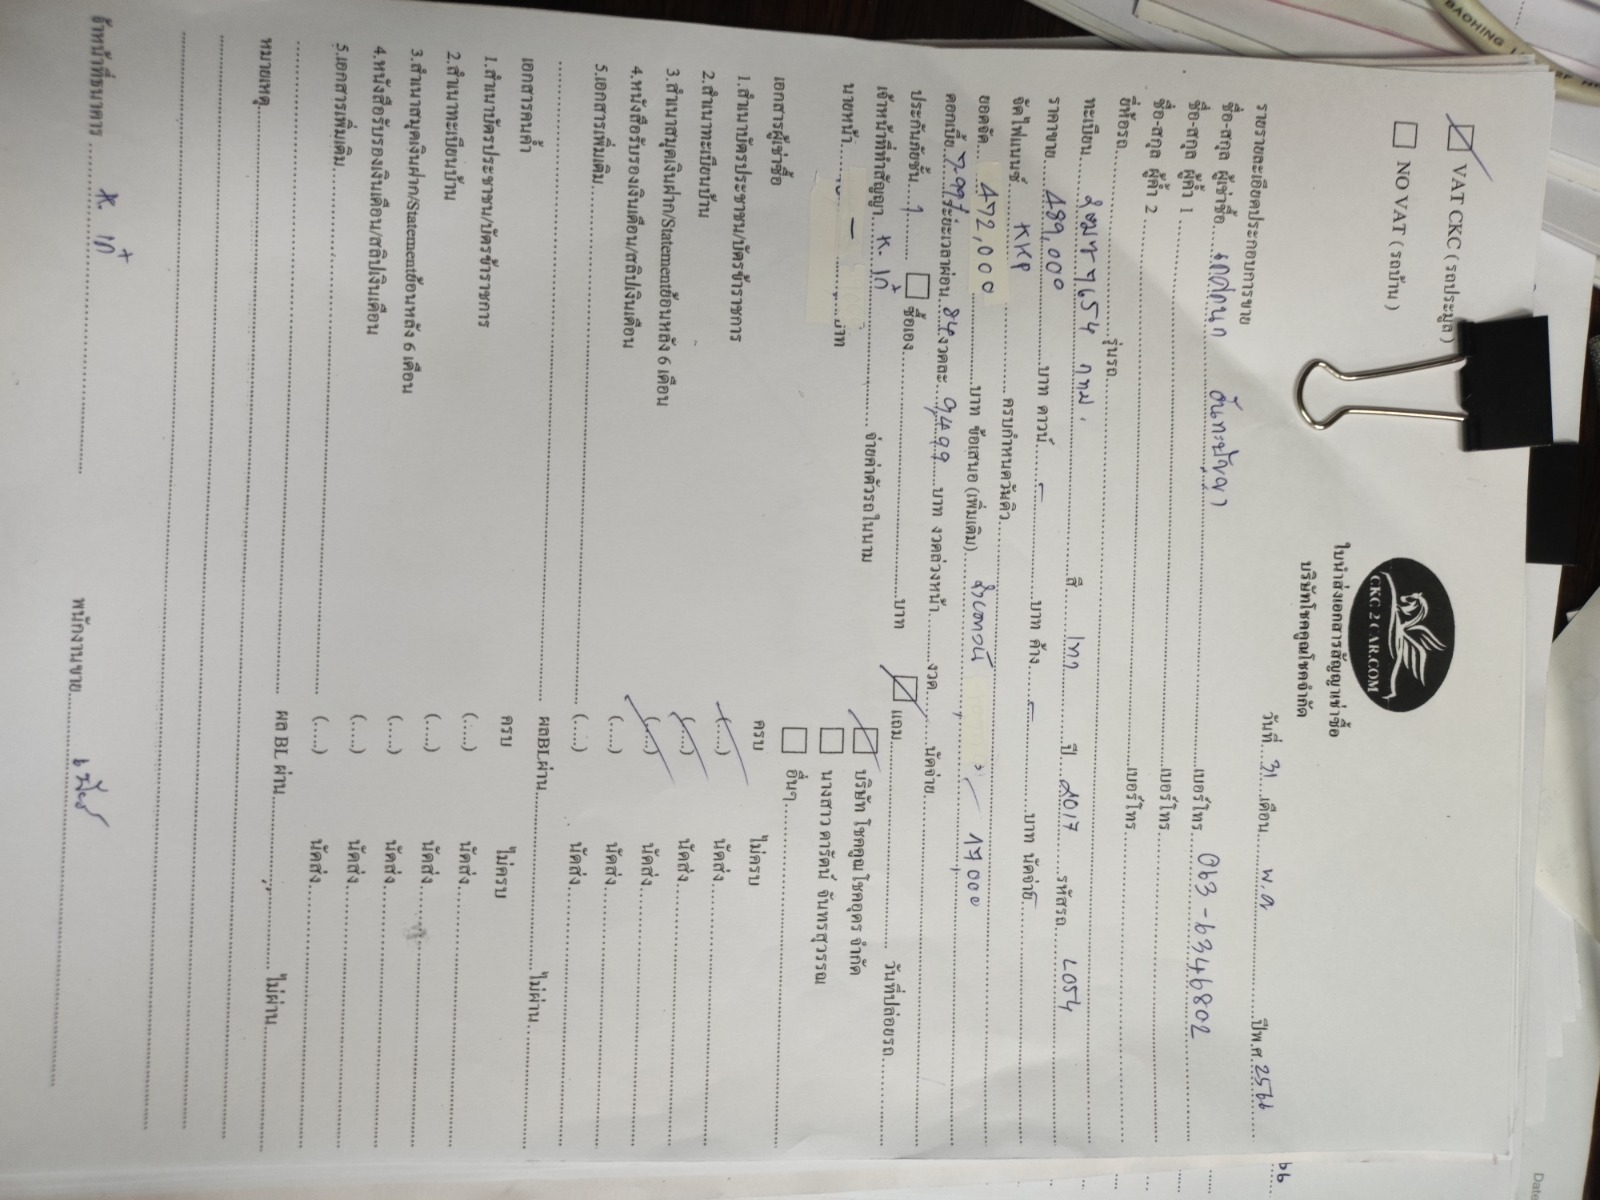 VAT CKC ( รถประมูล )
NO VAT ( รถบ้าน )
CKC 2 CAR.COM
ใบนำส่งเอกสารสัญญาเช่าซื้อ
บริษัทโชคคูณโชคจำกัด
วันที่...31...เดือน พ.ค ปีพ.ศ.2566
รายรายละเอียดประกอบการขาย
ชื่อ-สกุล ผู้เช่าซื้อ เบอร์โทร 063-6346802
ชื่อ-สกุล ผู้ค้ำ 1 เบอร์โทร
ชื่อ-สกุล ผู้ค้ำ 2 เบอร์โทร
ยี่ห้อรถ รุ่นรถ
ทะเบียน กทม. สี เทา ปี 2017 รหัสรถ L054
ราคาขาย 489,000 บาท ดาวน์ - บาท ค้าง - บาท นัดจ่าย
จัดไฟแนนซ์ KKP ครบกำหนดวันคิว
ยอดจัด 472,000 บาท ข้อเสนอ (เพิ่มเติม) 17,000
ดอกเบี้ย ระยะเวลาผ่อน 84 งวดละ 9,499 บาท งวดล่วงหน้า งวด นัดจ่าย
ประกันภัยชั้น 1 ซื้อเอง บาท แถม วันที่ปล่อยรถ
เจ้าหน้าที่ทำสัญญา K. เก๋ จ่ายค่าตัวรถในนาม บริษัท โชคคูณโชคอุดร จำกัด
นายหน้า - บาท นางสาว ดารัตน์ จันทรสุวรรณ
อื่นๆ
เอกสารผู้เช่าซื้อ ครบ ไม่ครบ
1.สำเนาบัตรประชาชน/บัตรข้าราชการ (....) นัดส่ง
2.สำเนาทะเบียนบ้าน (....) นัดส่ง
3.สำเนาสมุดเงินฝาก/Statementย้อนหลัง 6 เดือน (....) นัดส่ง
4.หนังสือรับรองเงินเดือน/สลิปเงินเดือน (....) นัดส่ง
5.เอกสารเพิ่มเติม (....) นัดส่ง
ผลBLผ่าน ไม่ผ่าน
เอกสารคนค้ำ ครบ ไม่ครบ
1.สำเนาบัตรประชาชน/บัตรข้าราชการ (....) นัดส่ง
2.สำเนาทะเบียนบ้าน (....) นัดส่ง
3.สำเนาสมุดเงินฝาก/Statementย้อนหลัง 6 เดือน (....) นัดส่ง
4.หนังสือรับรองเงินเดือน/สลิปเงินเดือน (....) นัดส่ง
5.เอกสารเพิ่มเติม (....) นัดส่ง
ผล BL ผ่าน ไม่ผ่าน
หมายเหตุ
จ้าหน้าที่ธนาคาร K. เก๋ พนักงานขาย